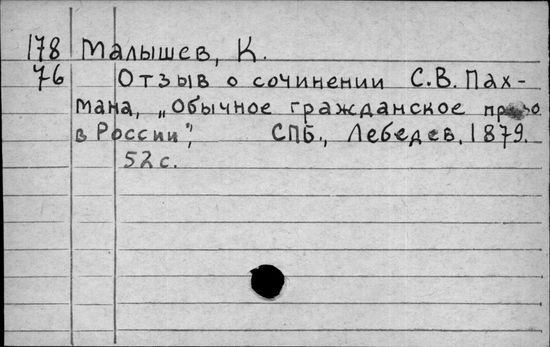 178 Малышев, К.
76 Отзыв о сочинении С.В. Пах-
мана, „Обычное гражданское право
в России", СПБ., Лебедев, 1879.
52 с.